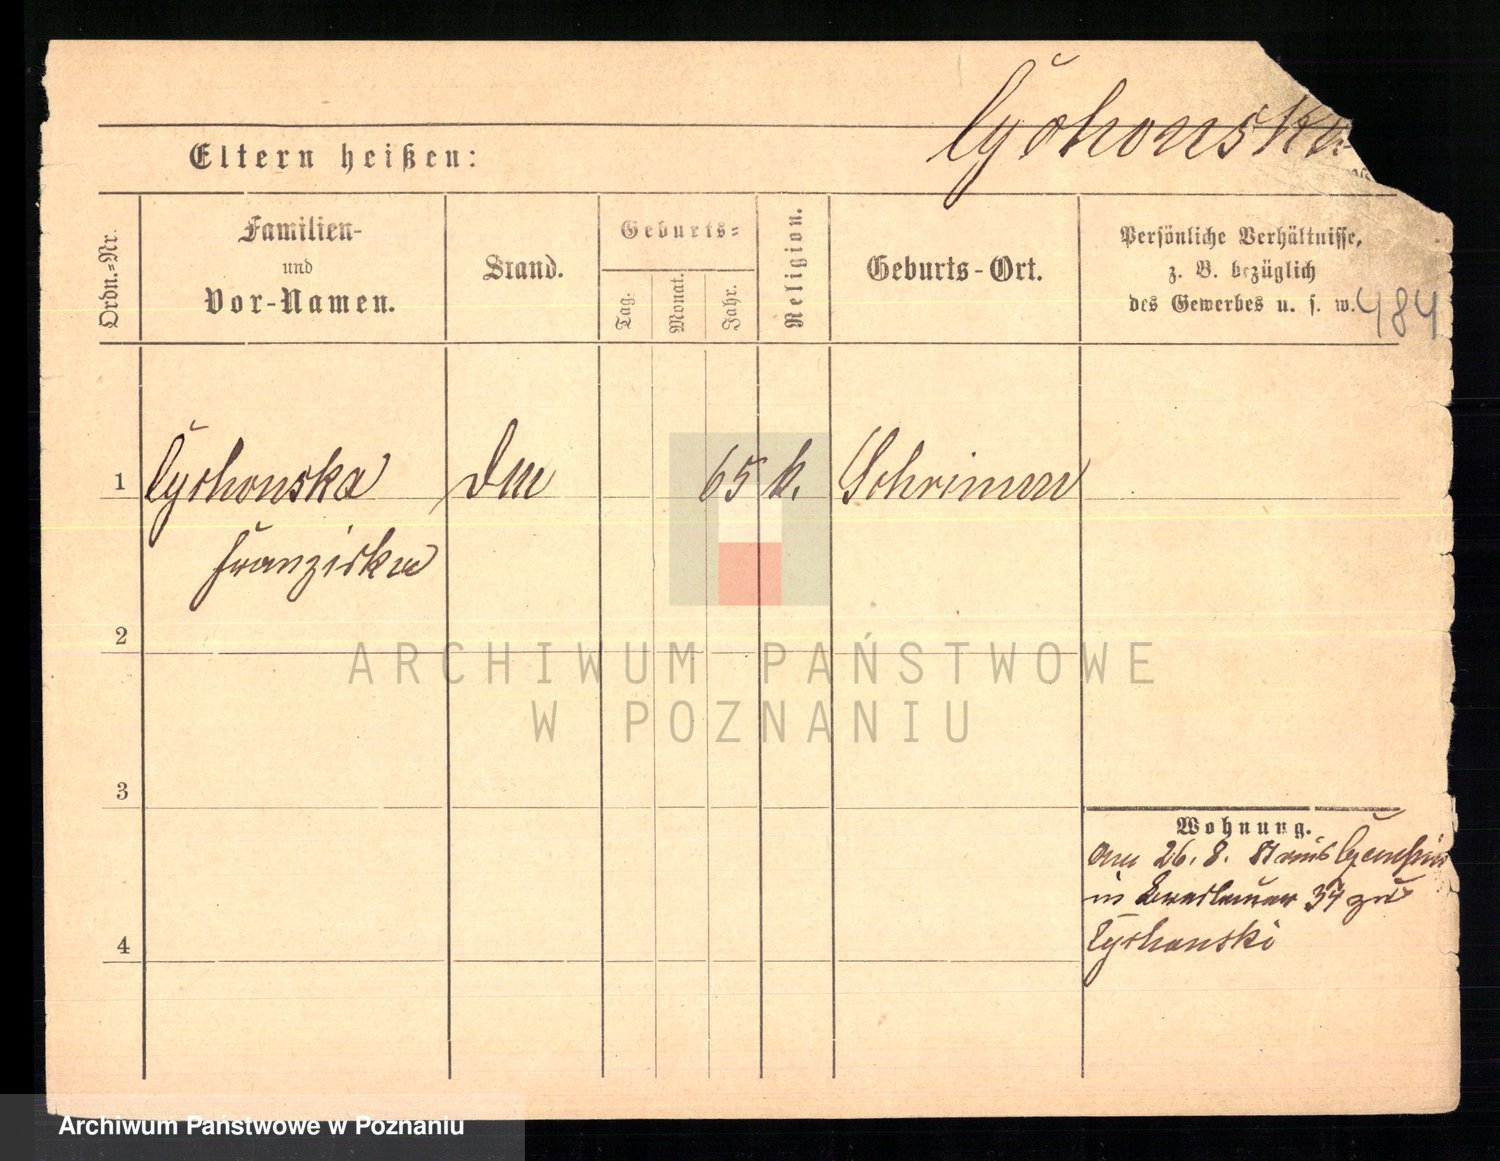 Cychonska
Eltern heißen:
Ordn.=Nr.
Familien-
und
Vor-Namen.
Stand.
Geburts=
Tag.
Monat.
Jahr.
Religion.
Geburts-Ort.
Persönliche Verhältnisse,
z. B. bezüglich
des Gewerbes u. s. w.
484
1 Cychonska 65 k. Schrimm
Franziska
2
3
4
Wohnung.
26. 8. 81 aus
in Breslauer 37 zu
Cychonski
ARCHIWUM PAŃSTWOWE
W POZNANIU
Archiwum Państwowe w Poznaniu